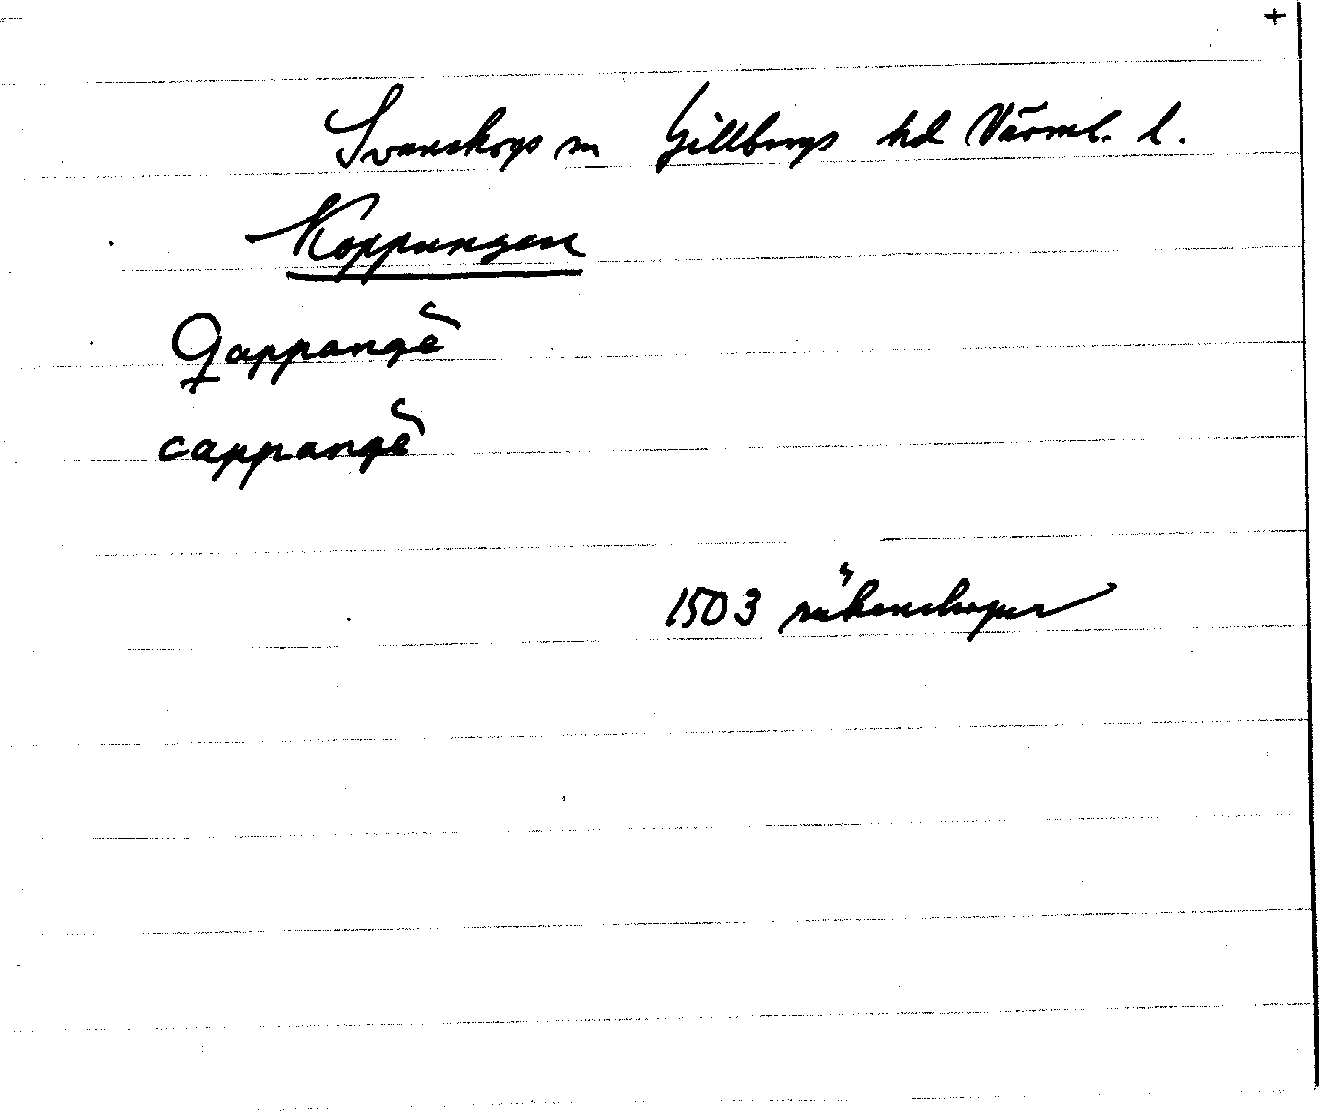 +
Svanskogs sn Gillbergs hd Värml. l.
Koppungen
Qappangẽ
cappangẽ
1503 räkenskaper